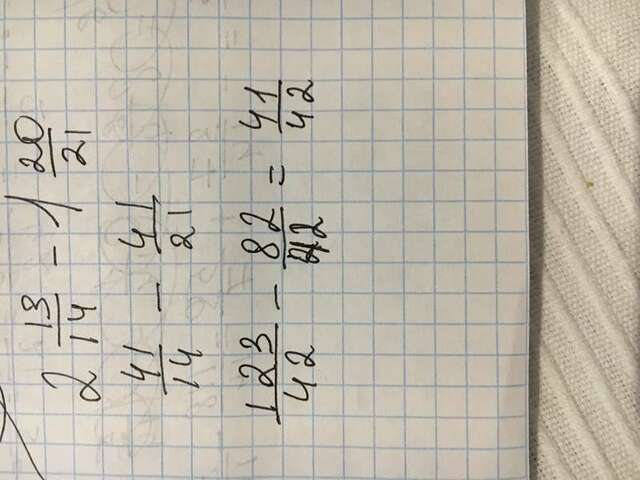 2 13/14 - 1 20/21
41/14 - 41/21
123/42 - 82/42 = 41/42